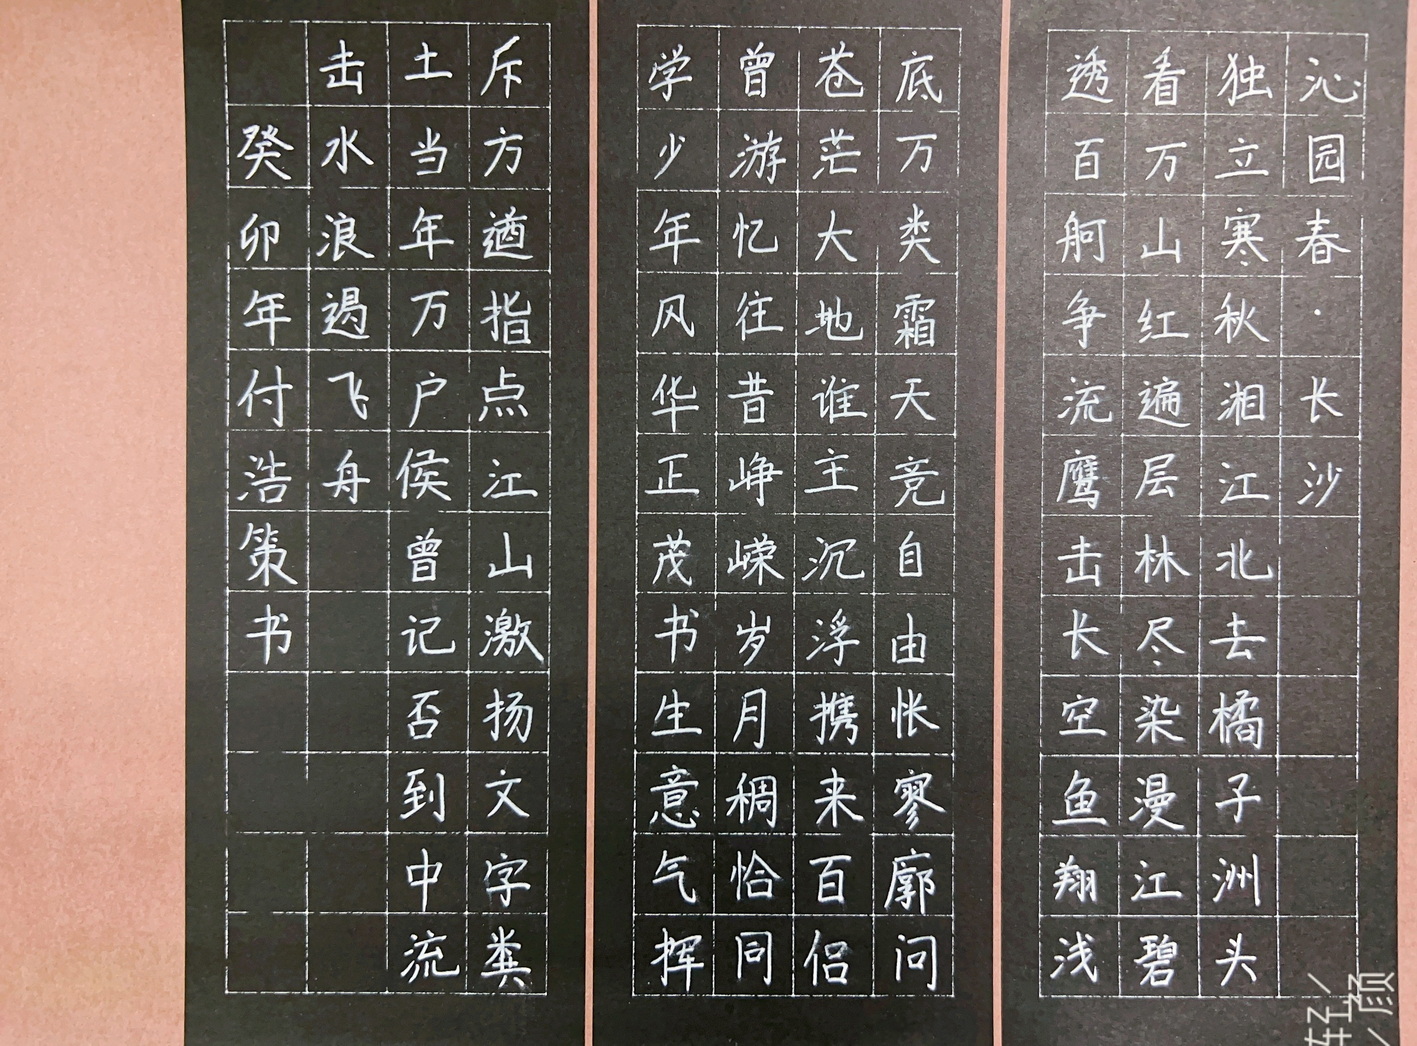 沁园春·长沙
独立寒秋湘江北去橘子洲头
看万山红遍层林尽染漫江碧
透百舸争流鹰击长空鱼翔浅
底万类霜天竞自由怅寥廓问
苍茫大地谁主沉浮携来百侣
曾游忆往昔峥嵘岁月稠恰同
学少年风华正茂书生意气挥
斥方遒指点江山激扬文字粪
土当年万户侯曾记否到中流
击水浪遏飞舟
癸卯年付浩策书
轻颜